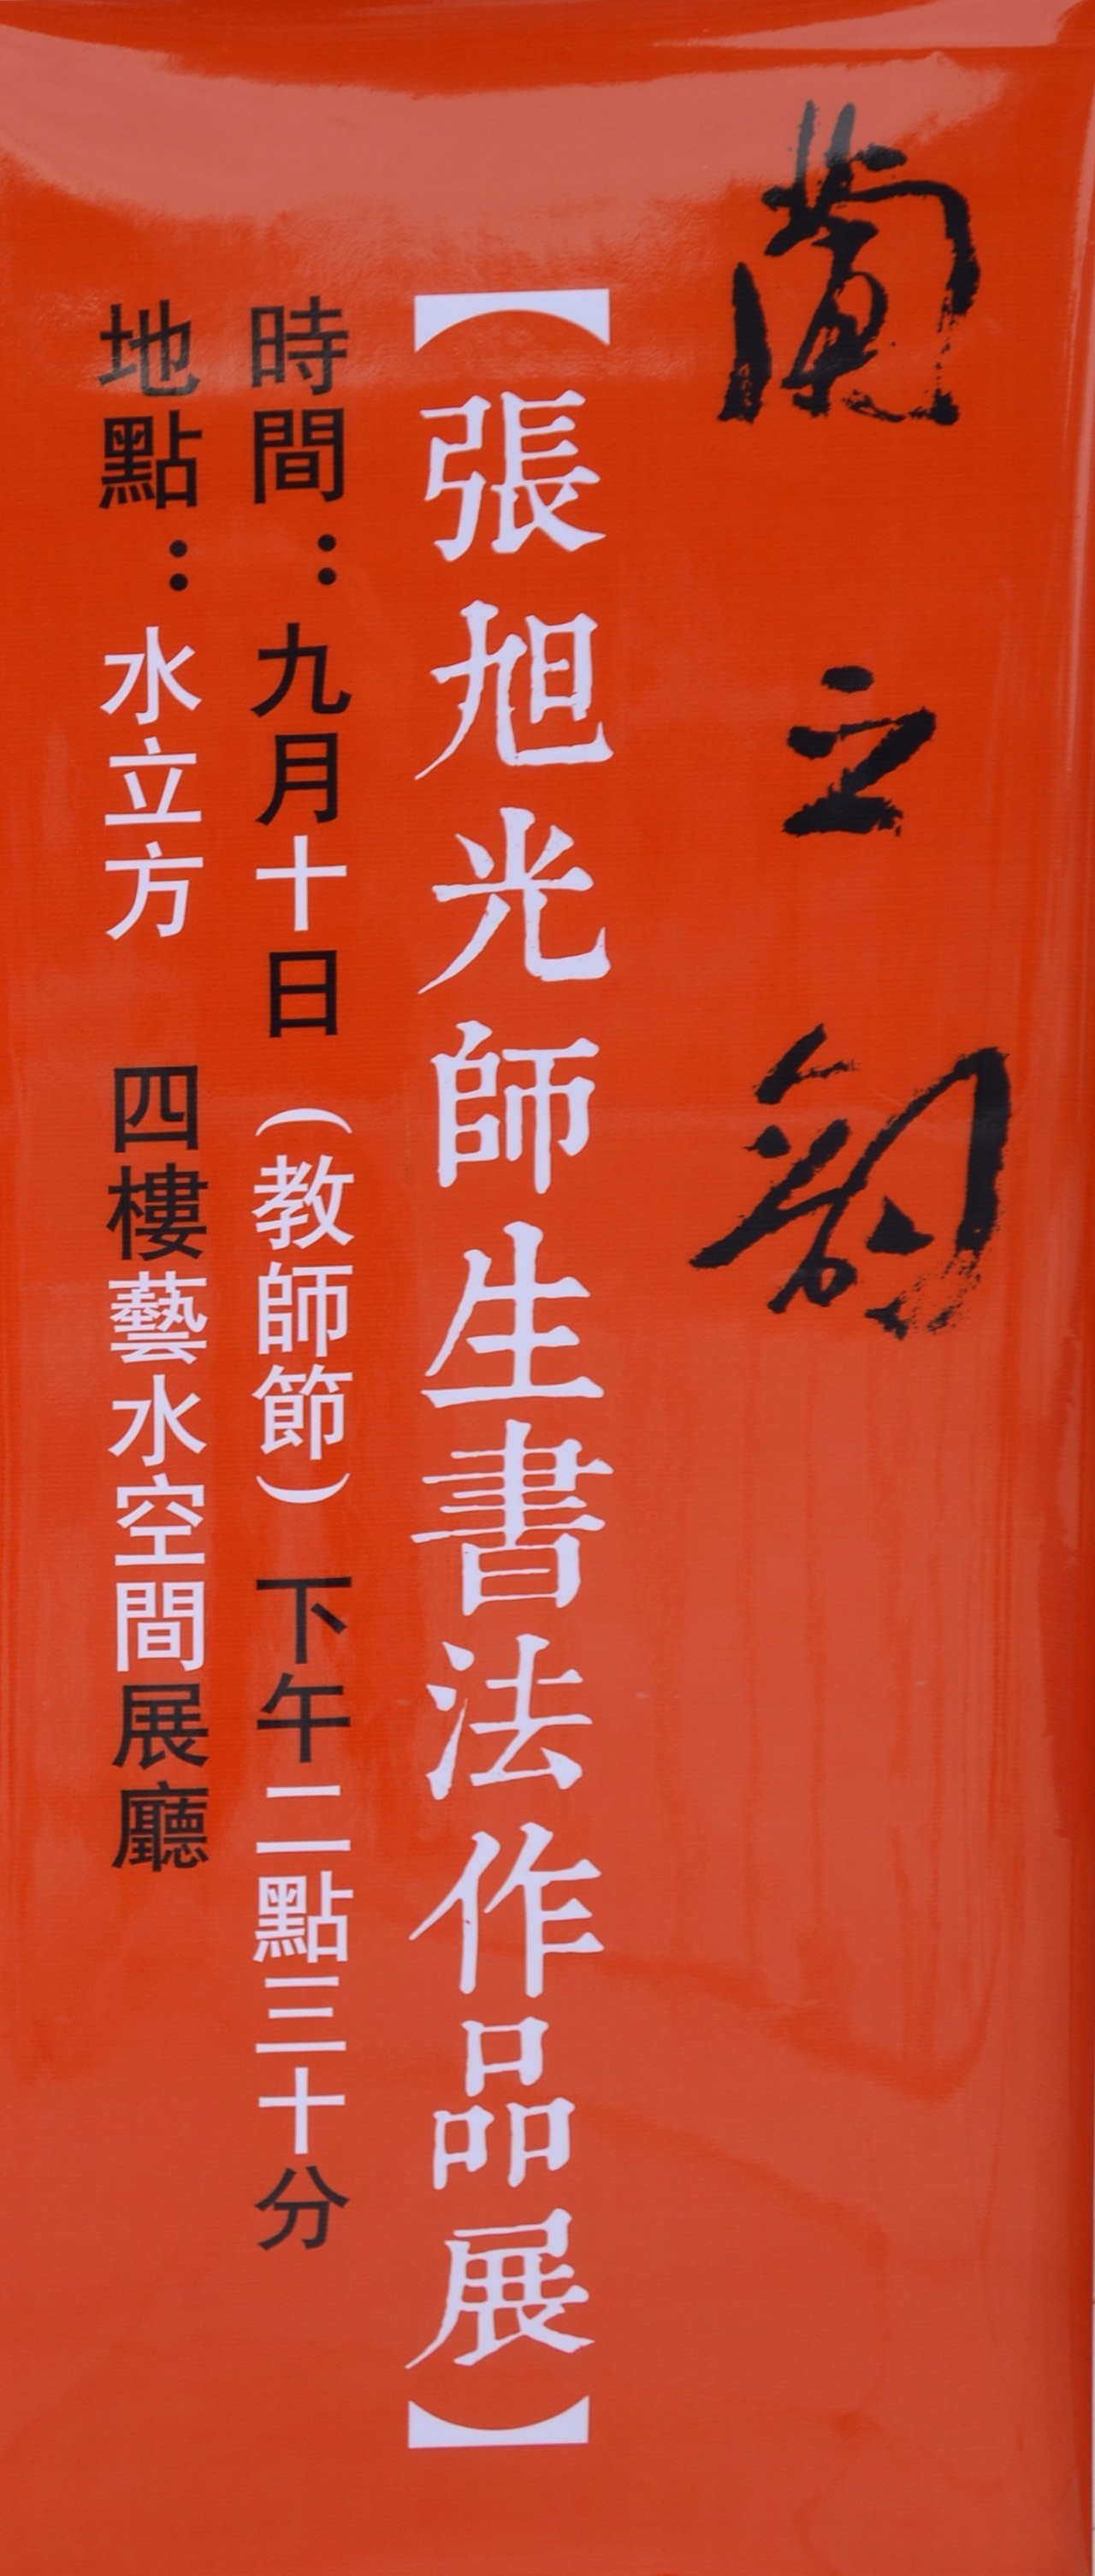 蘭之韵
【張旭光師生書法作品展】
時間：九月十日（教師節）下午二點三十分
地點：水立方 四樓藝水空間展廳